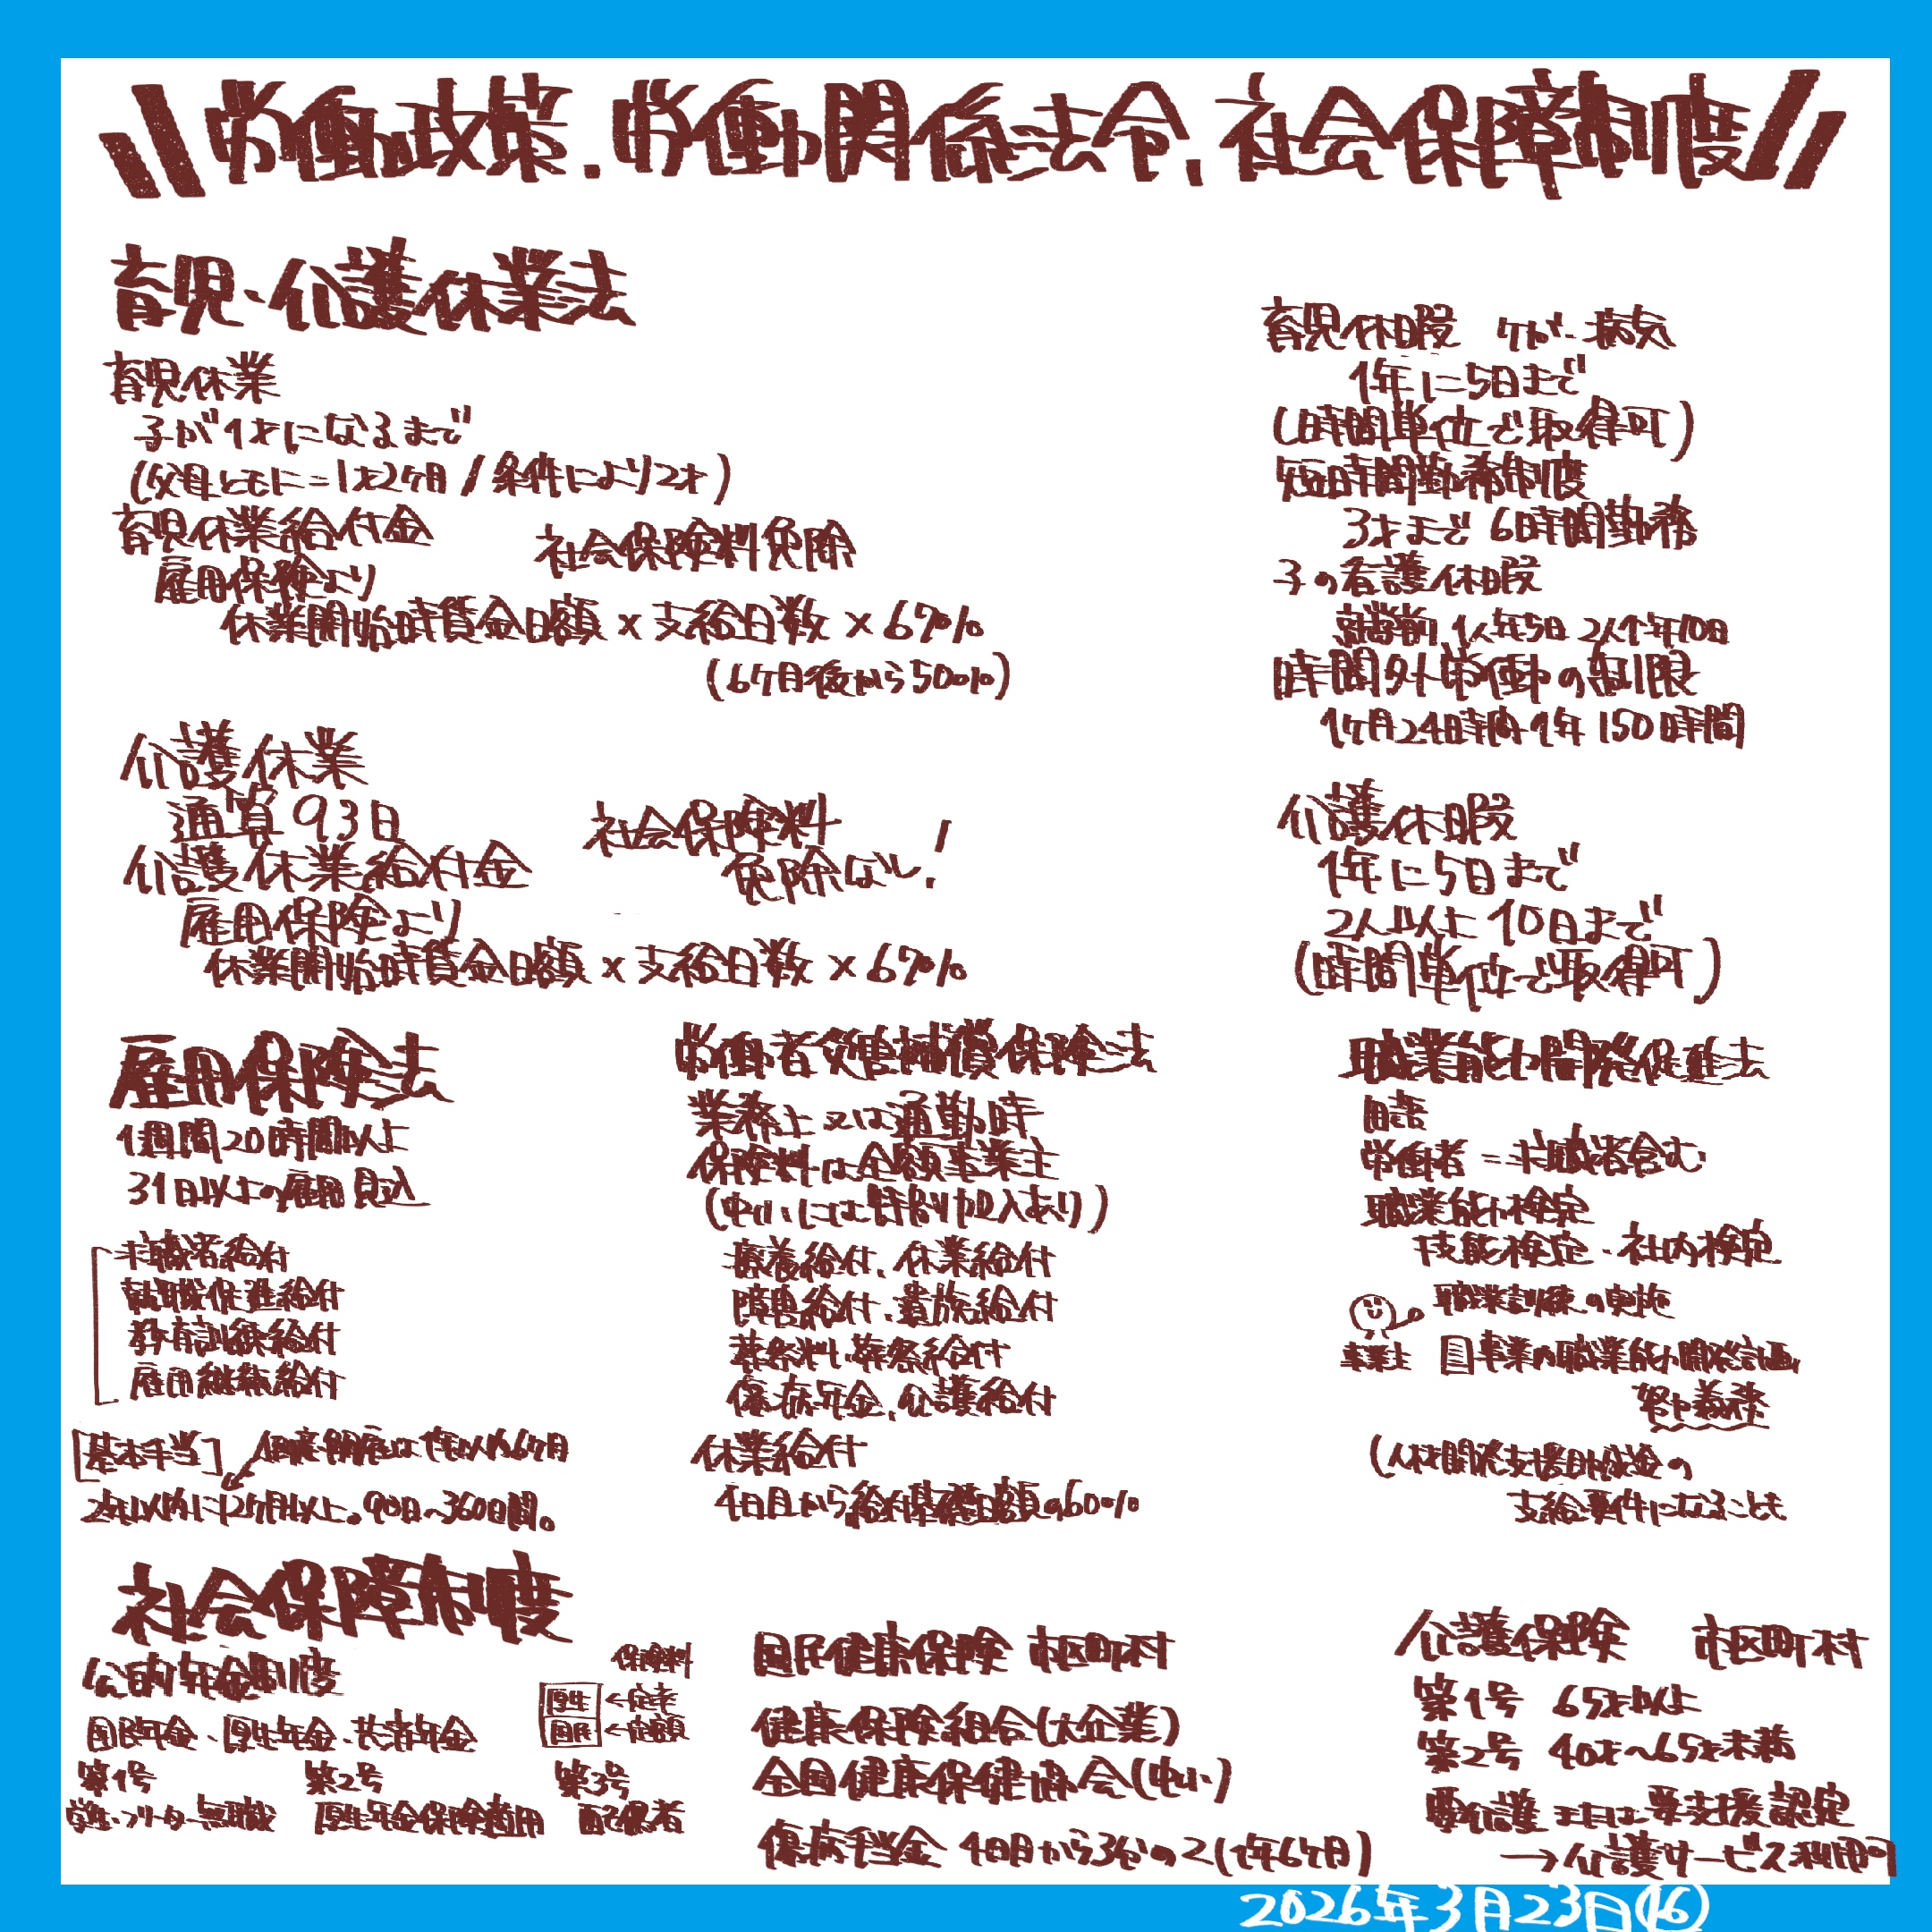 労働政策.労働関係法令、社会保障制度
育児・介護休業法
育児休業
子が1才になるまで
(父母ともに=1才2ヶ月/条件により2才)
育児休業給付金
社会保険料免除
雇用保険より
休業開始時賃金日額×支給日数×67%
(6ヶ月後から50%)
介護休業
通算93日
介護休業給付金
社会保険料
免除なし!
雇用保険より
休業開始時賃金日額×支給日数×67%
育児休暇 ケガ・病気
1年に5日まで
(時間単位で取得可)
短時間勤務制度
3才まで 6時間勤務
子の看護休暇
就学前 1人年5日 2人年10日
時間外労働の制限
1ヶ月24時間 1年150時間
介護休暇
1年に5日まで
2人以上10日まで
(時間単位で取得可)
雇用保険法
1週間20時間以上
31日以上の雇用見込
求職者給付
就職促進給付
教育訓練給付
雇用継続給付
[基本手当]
倒産・解雇は1年以内6ヶ月
2年以内に12ヶ月以上。90日~360日間。
労働者災害補償保険法
業務上又は通勤時
保険料は全額事業主
(中小には特別加入あり)
療養給付、休業給付
障害給付、遺族給付
葬祭料・葬祭給付
傷病年金、介護給付
休業給付
4日目から給付基礎日額の60%
職業能力開発促進法
労働者=求職者含む
職業能力検定
技能検定・社内検定
職業訓練の実施
事業主
事業内職業能力開発計画
努力義務
(人材開発支援助成金の
支給要件になることも
社会保障制度
公的年金制度
国民年金・厚生年金・共済年金
保険料
厚生←定率
国民←定額
第1号 第2号 第3号
学生・フリーター・無職 厚生年金保険適用 配偶者
国民健康保険 市区町村
健康保険組合(大企業)
全国健康保健協会(中小)
傷病手当金 4日目から3分の2(1年6ヶ月)
介護保険 市区町村
第1号 65才以上
第2号 40才~65才未満
要介護または要支援認定
→介護サービス利用可
2026年3月23日(16)